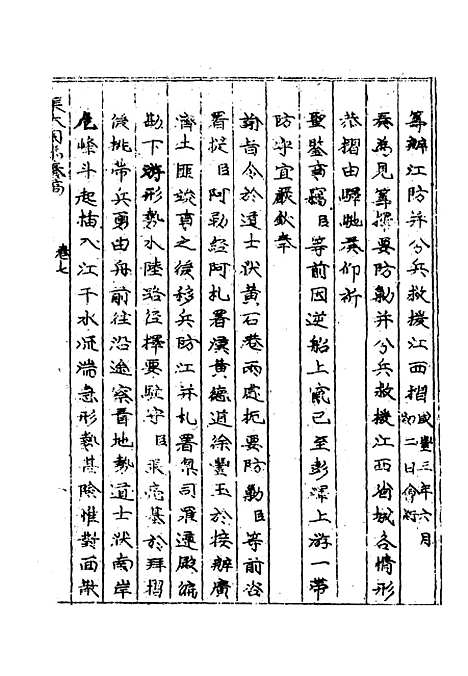 籌辦江防并分兵救援江西摺 咸豐三年六月初二日會銜
奏為見籌擇要防勦并分兵救援江西省城各情形
恭摺由驛馳奏仰祈
聖鑒事竊臣等前因逆船上竄已至彭澤上游一帶
防守宜嚴欽奉
諭旨令於道士洑黃石巷兩處扼要防勦臣等前咨
署提臣阿勒經阿札署漢黃德道徐豐玉於接辦廣
濟土匪竣事之後移兵防江并札署臬司羅遵殿編
勘下游形勢水陸路徑擇要駐守臣張亮基於拜摺
後挑帶兵勇由舟前往沿途察看地勢道士洑南岸
危峰斗起插入江干水流湍急形勢甚險惟對面散
卷七